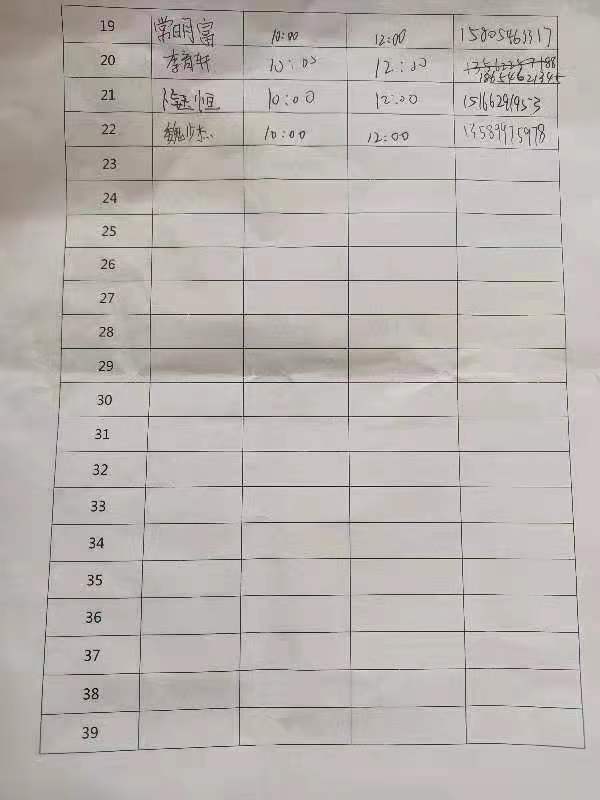 19 常明富 10:00 12:00 15805463317
20 李育轩 10:00 12:00
18654621345
21 恒 10:00 12:00 15166291953
22 魏 10:00 12:00 13589975978
23
24
25
26
27
28
29
30
31
32
33
34
35
36
37
38
39